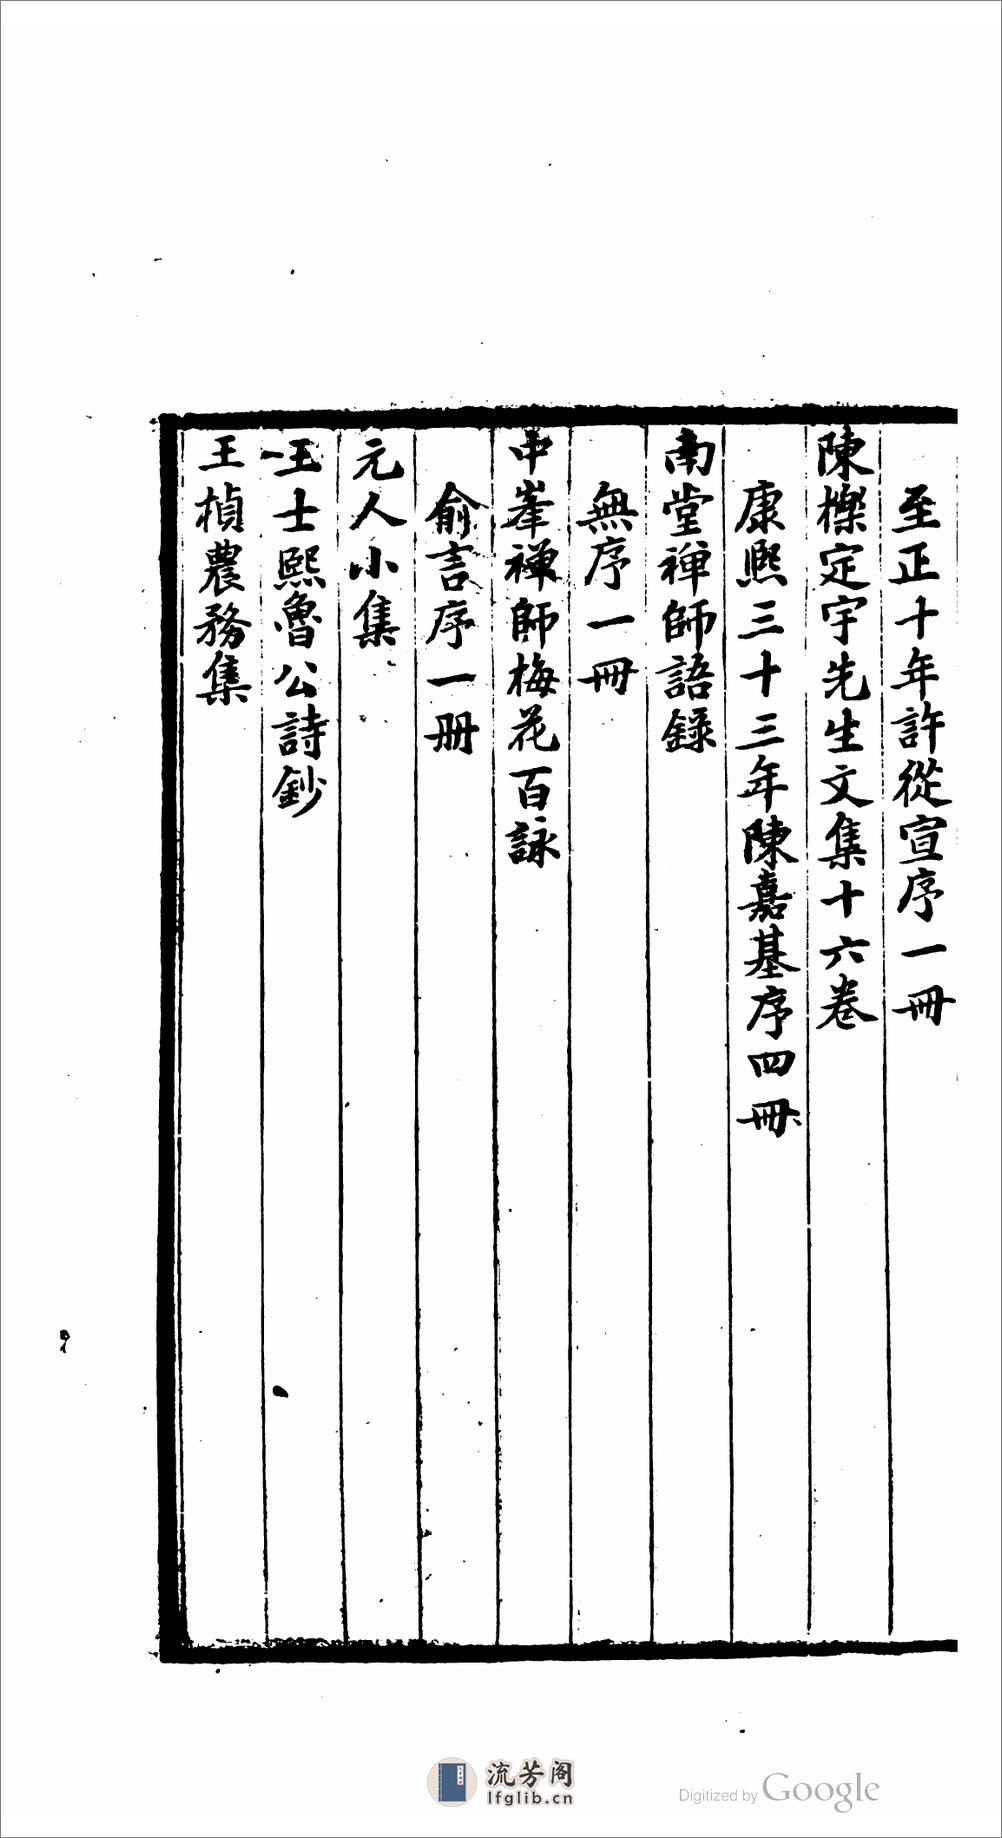 至正十年許從宣序一冊
陳櫟定宇先生文集十六卷
康熙三十三年陳嘉基序四冊
南堂禪師語録
無序一冊
中峯禪師梅花百詠
俞言序一册
元人小集
王士熙魯公詩鈔
王楨農務集
流芳阁
lfglib.cn
Digitized by Google